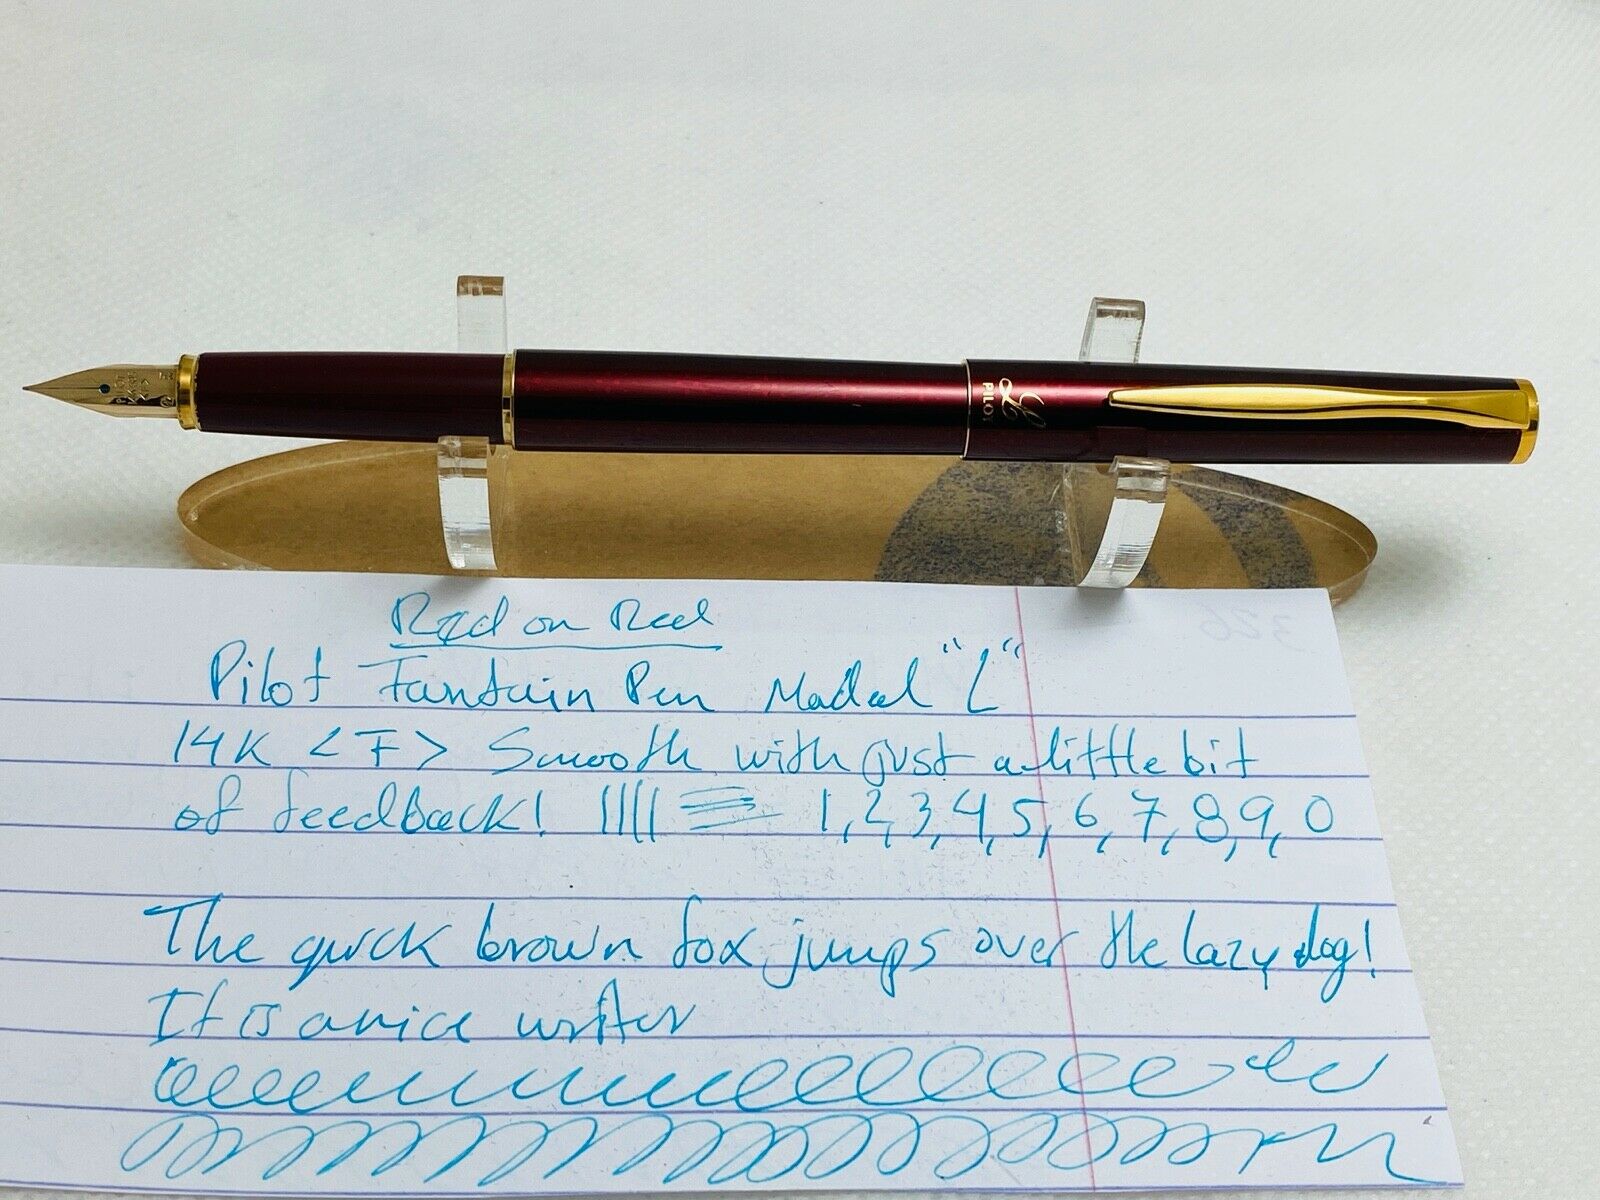 L
PILOT
Red on Red
Pilot Fountain Pen Model "L"
14K <F> Smooth with just a little bit
of feedback! 1, 2, 3, 4, 5, 6, 7, 8, 9, 0
The quick brown fox jumps over the lazy dog!
It is a nice writer